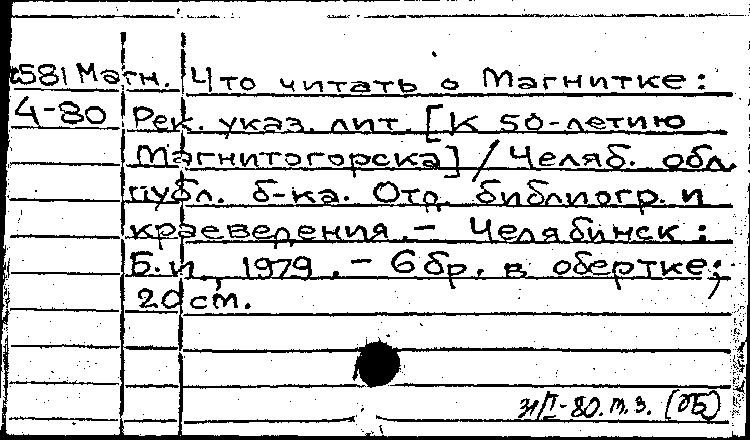 581 Магн. Что читать о Магнитке:
4-80 Рек. указ. лит. [К 50-летию
Магнитогорска] / Челяб. обл.
публ. б-ка. Отд. библиогр. и
краеведения. - Челябинск:
Б.и., 1979. - 6 бр. в обертке;
20 см.
80. т. з. (ОБ)